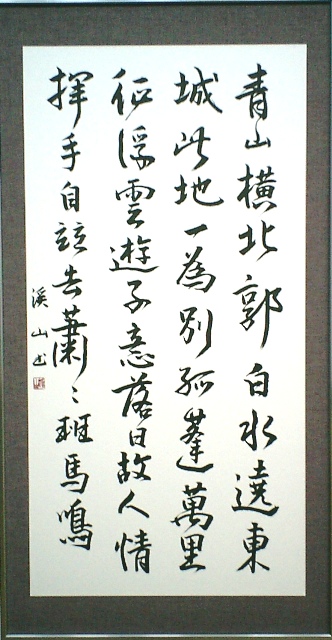 青山橫北郭白水遶東
城此地一為別孤蓬萬里
征浮雲遊子意落日故人情
揮手自茲去蕭〻班馬鳴
溪山書